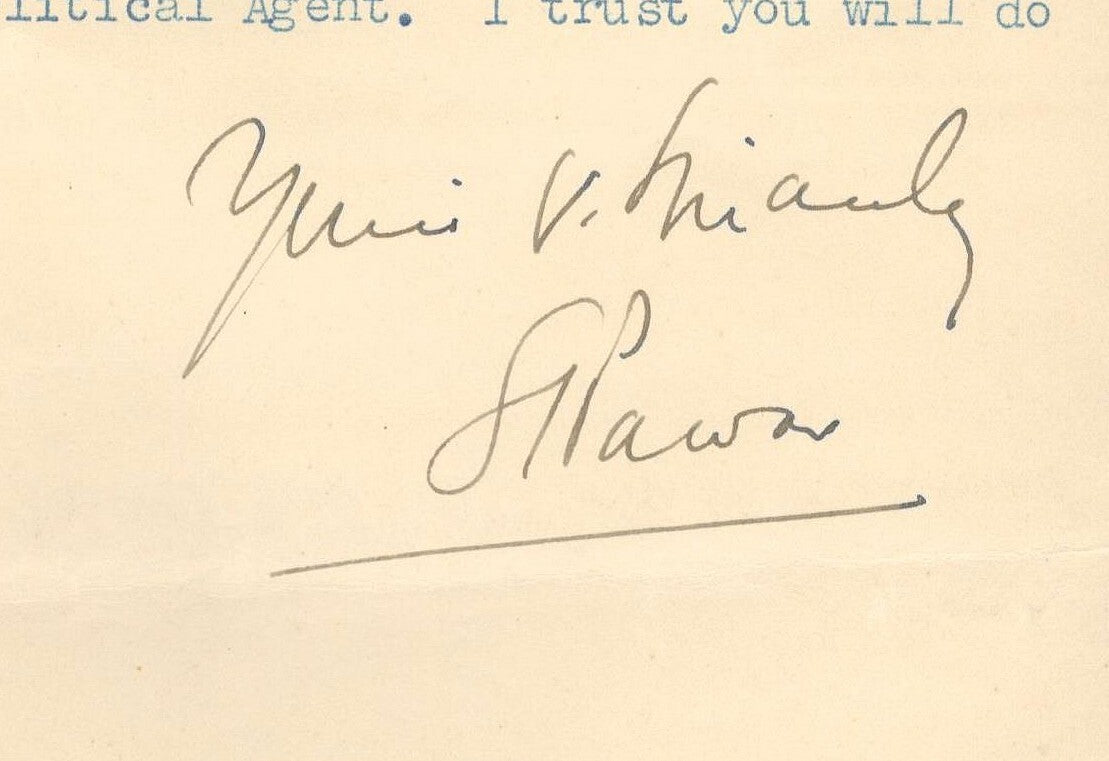 litical Agent. I trust you will do
Yours V. Sincerely
Pawar